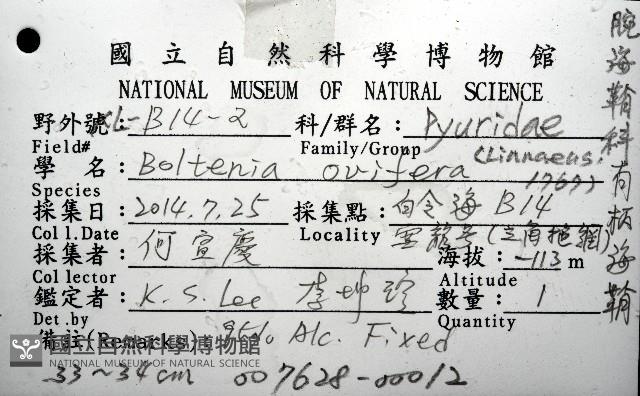 國立自然科學博物館
NATIONAL MUSEUM OF NATURAL SCIENCE
野外號: KL-B14-2 科/群名: Pyuridae
Field# Family/Group (Linnaeus, 1767)
學 名: Boltenia ovifera
Species
採集日: 2014.7.25 採集點: 白令海 B14
Coll.Date Locality 雪龍号(三角拖網)
採集者: 何宣慶 海拔: -113 m
Collector Altitude
鑑定者: K. S. Lee 李坤 數量: 1
Det.by Quantity
備註(Remarks) 95% Alc. Fixed
國立自然科學博物館
NATIONAL MUSEUM OF NATURAL SCIENCE
33~34cm 007628-00012
腕海鞘科有柄海鞘